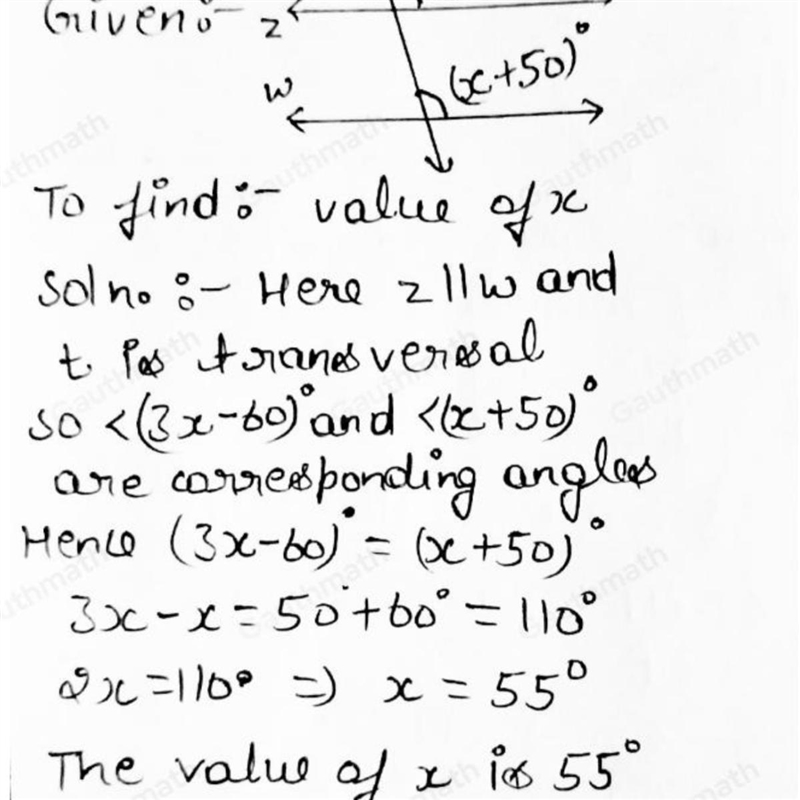 Given:- z
(x+50)°
w
To find :- value of x
Soln. :- Here z || w and
t is transversal
so <(3x-60)° and <(x+50)°
are corresponding angles
Hence (3x-60)° = (x+50)°
3x - x = 50° + 60° = 110°
2x = 110° => x = 55°
The value of x is 55°
Gauthmath